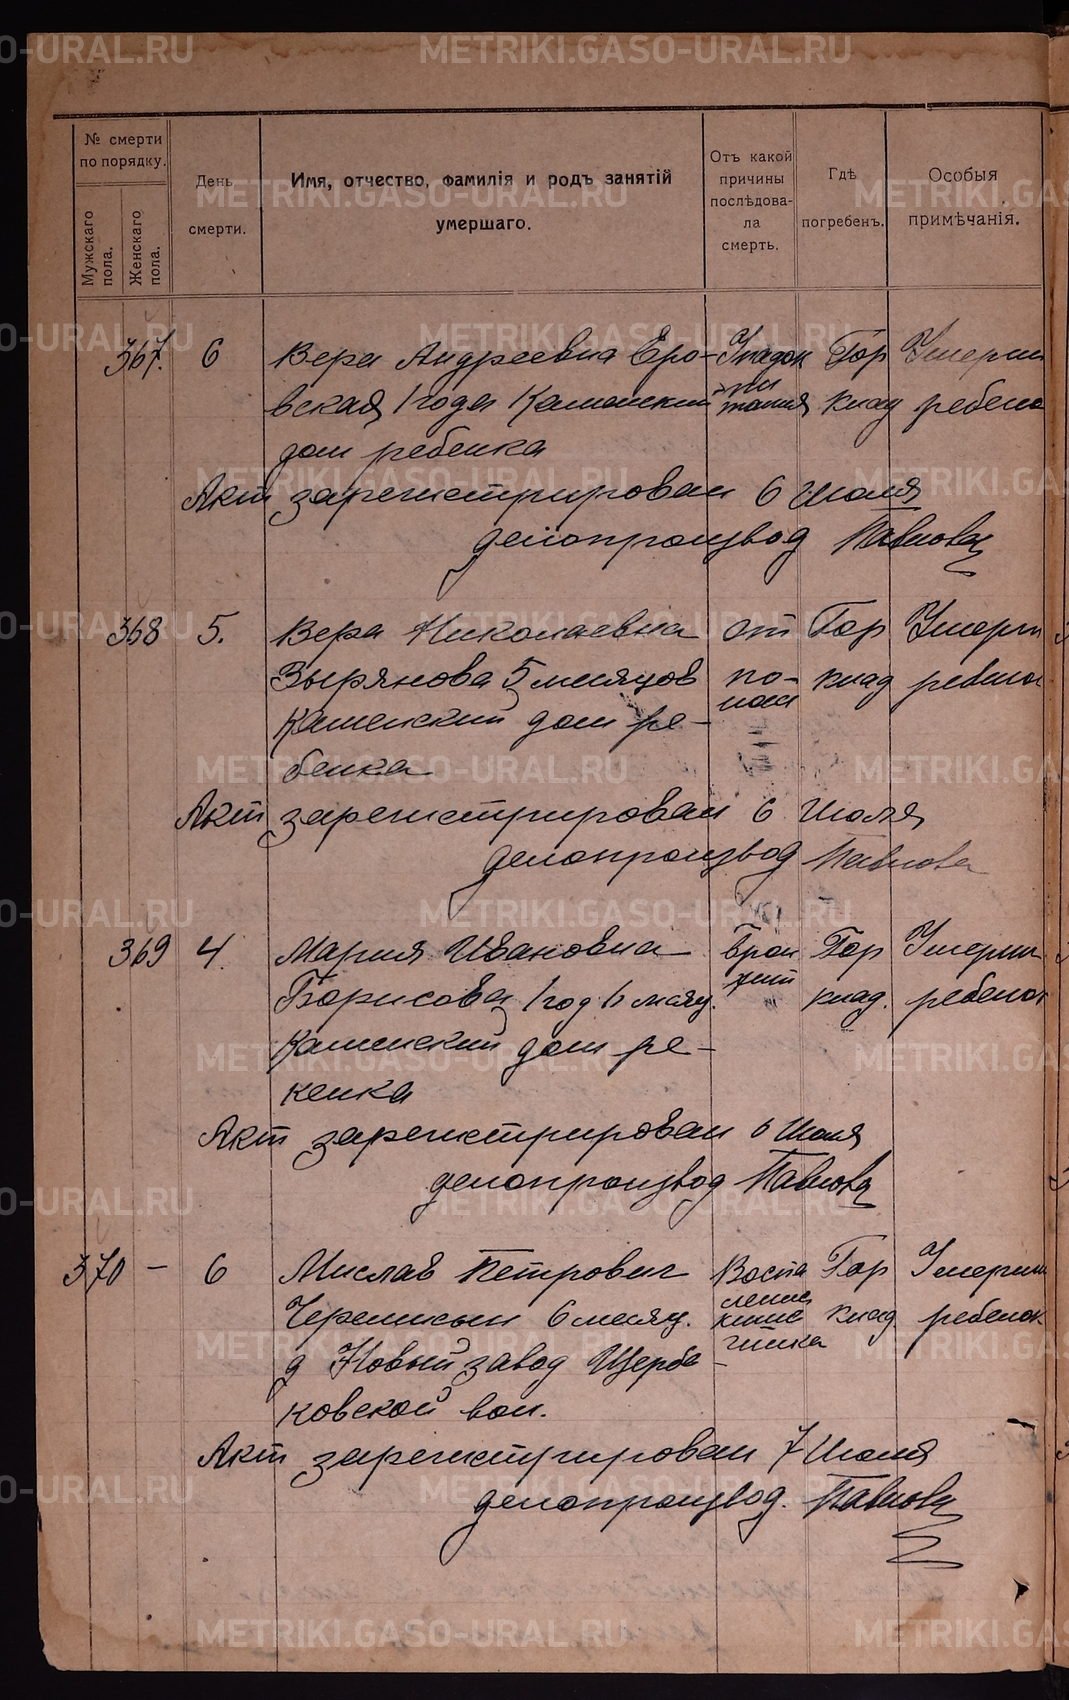 METRIKI.GASO-URAL.RU
№ смерти по порядку.
Мужскаго пола.
Женскаго пола.
День смерти.
Имя, отчество, фамилія и родъ занятій умершаго.
Отъ какой причины послѣдовала смерть.
Гдѣ погребенъ.
Особыя примѣчанія.
367. 6 Вера Андреевна Еро- Упадок Гор Умерш
вская 1 года Каменский питания клад ребено
дом ребенка
Акт зарегистрирован 6 Июля
делопроизвод Павлова
368 5. Вера Николаевна от Гор Умерш
Зырянова 5 месяцов по- клад ребенок
Каменский дом ре- нос
бенка
Акт зарегистрирован 6 Июля
делопроизвод Павлова
369 4. Мария Ивановна Брон Гор Умерш
Борисова 1 год 1 месяц. хит клад. ребенок
Каменский дом ре-
кенка
Акт зарегистрирован 6 Июля
делопроизвод Павлова
370 – 6 Мислав Петрович Воспа Гор Умерш
Черемисин 6 месяц. ление клад ребенок
д Новый завод Щерба кише
ковской вол. чника
Акт зарегистрирован 7 Июля
делопроизвод. Павлова